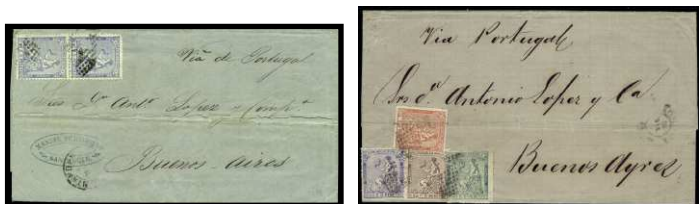 Via de Portugal
Sres Dn Anto Lopez y Compa
Buenos-aires
Via Portugal
Sres Dn Antonio Lopez y Ca
Buenos Ayres